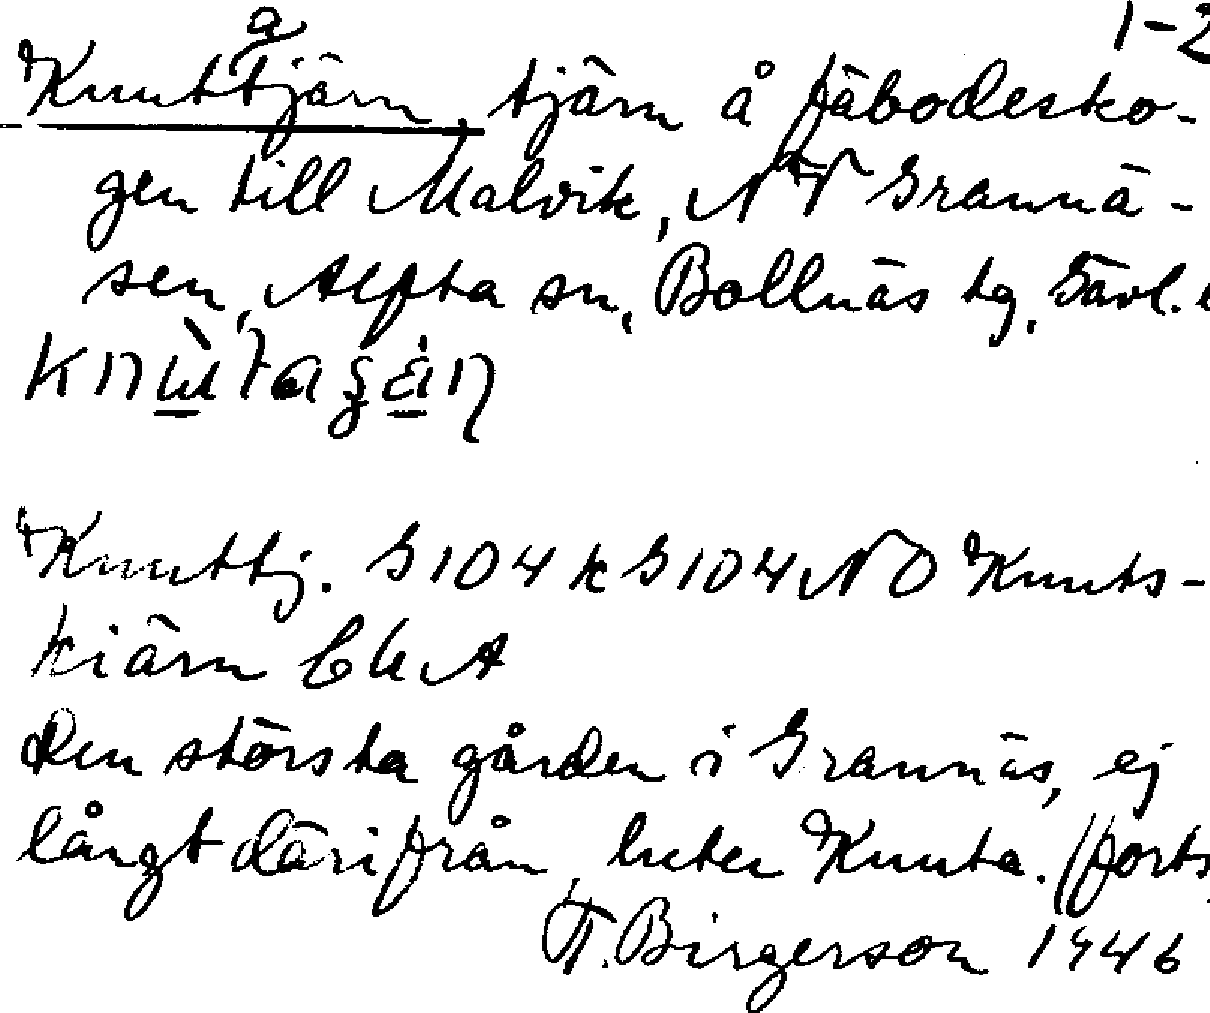 1-2
a
Knuttjärn, tjärn å fäbodesko-
gen till Malvik, NV Grannä-
sen, Alfta sn, Bollnäs tg, Gävl.

Knuttj. G104 k G104 NO Knuts-
kiärn
Den största gården i Grannäs, ej
långt därifrån, heter Knuta. (forts
T. Birgerson 1946